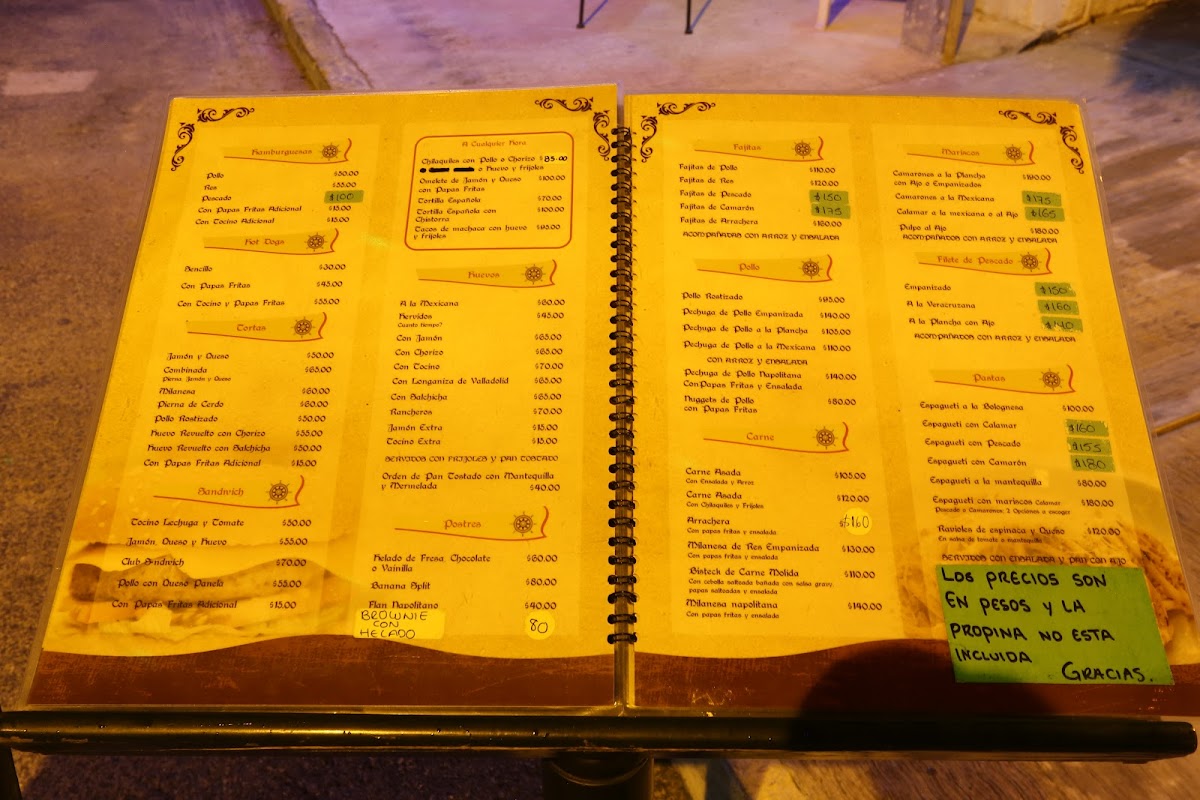 Hamburguesas
Pollo $50.00
Res $55.00
Pescado $100
Con Papas Fritas Adicional $15.00
Con Tocino Adicional $15.00
Hot Dogs
Sencillo $30.00
Con Papas Fritas $45.00
Con Tocino y Papas Fritas $55.00
Tortas
Jamón y Queso $50.00
Combinada $65.00
Pierna, Jamón y Queso
Milanesa $60.00
Pierna de Cerdo $60.00
Pollo Rostizado $50.00
Huevo Revuelto con Chorizo $55.00
Huevo Revuelto con Salchicha $50.00
Con Papas Fritas Adicional $15.00
Sandwich
Tocino Lechuga y Tomate $50.00
Jamón, Queso y Huevo $55.00
Club Sandwich $70.00
Pollo con Queso Panela $55.00
Con Papas Fritas Adicional $15.00
A Cualquier Hora
Chilaquiles con Pollo o Chorizo $85.00
o Huevo y frijoles
Omelete de Jamón y Queso $100.00
con Papas Fritas
Tortilla Española $70.00
Tortilla Española con $100.00
Chistorra
Tacos de machaca con huevo $95.00
y Frijoles
Huevos
A la Mexicana $60.00
Hervidos $45.00
Cuanto tiempo?
Con Jamón $65.00
Con Chorizo $65.00
Con Tocino $70.00
Con Longaniza de Valladolid $65.00
Con Salchicha $65.00
Rancheros $70.00
Jamón Extra $15.00
Tocino Extra $15.00
SERVIDOS CON FRIJOLES Y PAN TOSTADO
Orden de Pan Tostado con Mantequilla
y Mermelada $40.00
Postres
Helado de Fresa, Chocolate $60.00
o Vainilla
Banana Split $80.00
Flan Napolitano $40.00
BROWNIE
CON
HELADO 80
Fajitas
Fajitas de Pollo $110.00
Fajitas de Res $120.00
Fajitas de Pescado $150
Fajitas de Camarón $175
Fajitas de Arrachera $160.00
ACOMPAÑADAS CON ARROZ Y ENSALADA
Pollo
Pollo Rostizado $95.00
Pechuga de Pollo Empanizada $140.00
Pechuga de Pollo a la Plancha $105.00
Pechuga de Pollo a la Mexicana $110.00
CON ARROZ Y ENSALADA
Pechuga de Pollo Napolitana $140.00
Con Papas Fritas y Ensalada
Nuggets de Pollo $80.00
con Papas Fritas
Carne
Carne Asada $105.00
Con Ensalada y Arroz
Carne Asada $120.00
Con Chilaquiles y Frijoles
Arrachera $160
Con papas fritas y ensalada
Milanesa de Res Empanizada $130.00
Con papas fritas y ensalada
Bisteck de Carne Molida $110.00
Con cebolla salteada bañada con salsa gravy,
papas salteadas y ensalada
Milanesa napolitana $140.00
Con papas fritas y ensalada
Mariscos
Camarones a la Plancha $180.00
con Ajo o Empanizados
Camarones a la Mexicana $175
Calamar a la mexicana o al Ajo $165
Pulpo al Ajo $180.00
ACOMPAÑADOS CON ARROZ Y ENSALADA
Filete de Pescado
Empanizado $150
A la Veracruzana $160
A la Plancha con Ajo $140
ACOMPAÑADOS CON ARROZ Y ENSALADA
Pastas
Espagueti a la Bolognesa $100.00
Espagueti con Calamar $160
Espagueti con Pescado $155
Espagueti con Camarón $180
Espagueti a la mantequilla $80.00
Espagueti con mariscos Calamar $180.00
Pescado o Camarones, 2 Opciones a escoger
Ravioles de espinaca y Queso $120.00
En salsa de tomate o mantequilla
SERVIDOS CON ENSALADA Y PAN CON AJO
LOS PRECIOS SON
EN PESOS Y LA
PROPINA NO ESTA
INCLUIDA GRACIAS.